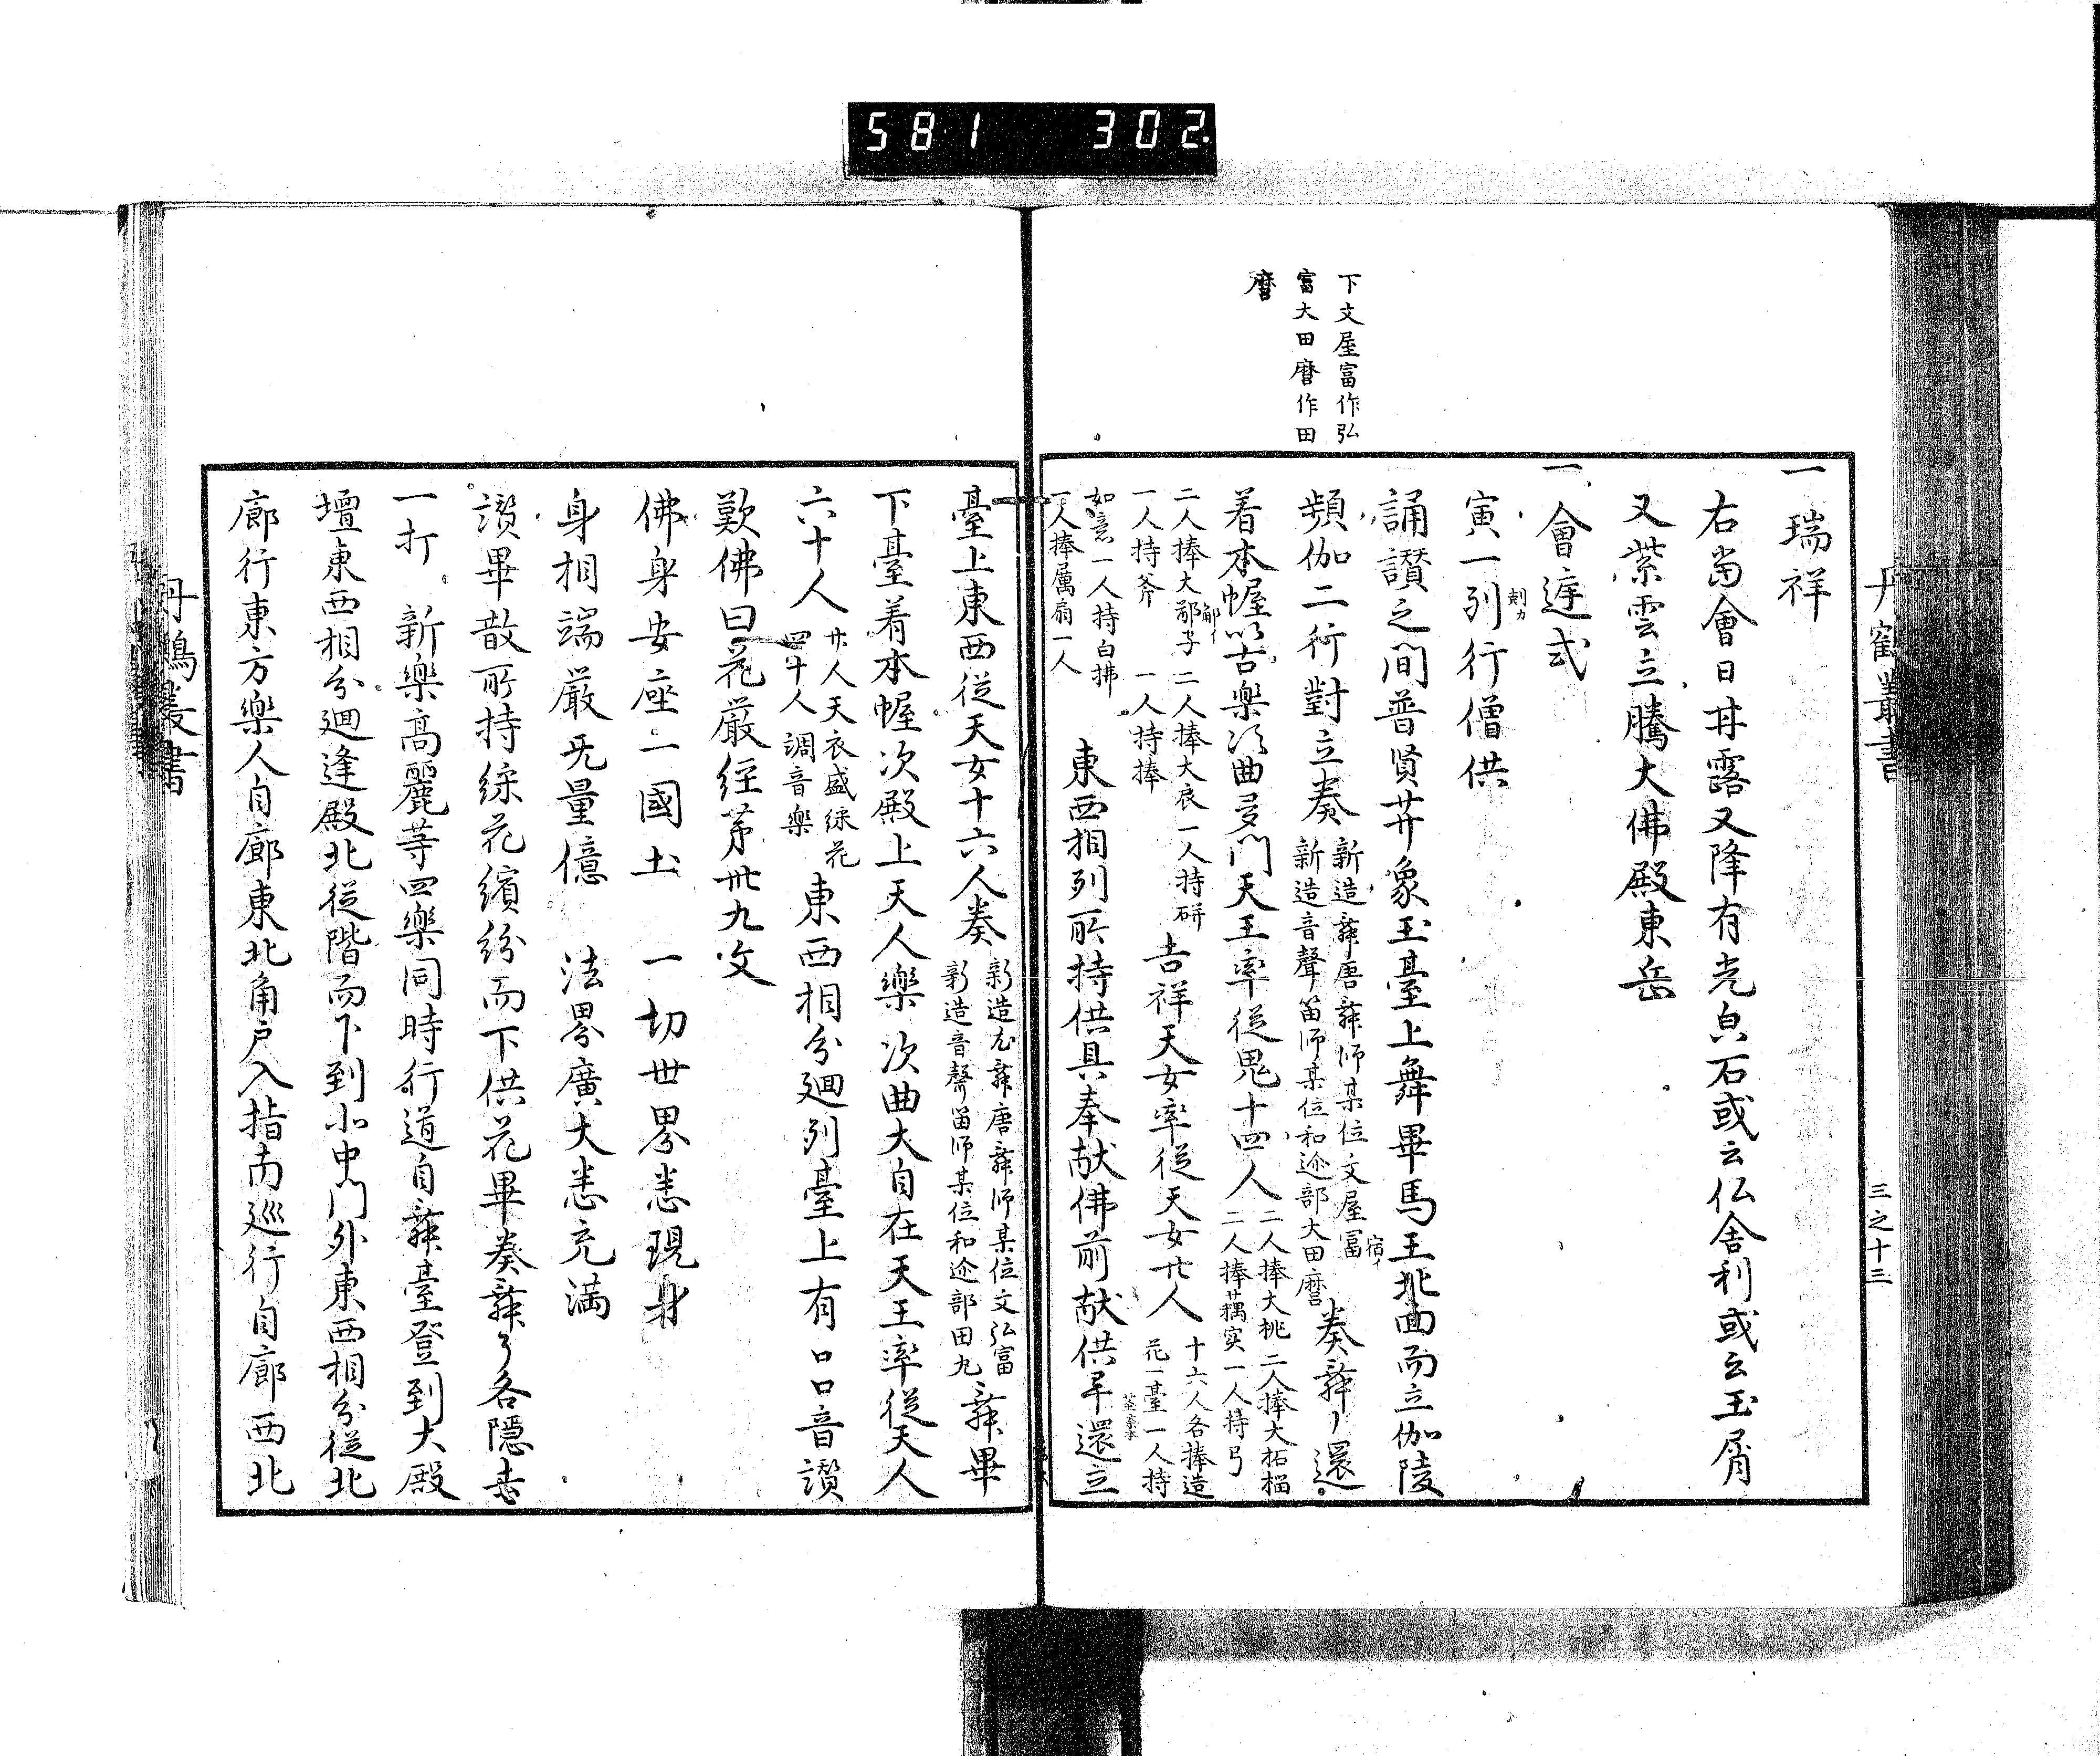 581 302
丹鶴叢書
三之十三
下文屋富作弘
富大田麿作田
麿
一瑞祥
右當會日甘露又降有光白石或云仏舎利或云玉屑
又紫雲立騰大佛殿東岳
一會莚式
寅一列行僧供
刻カ
誦讃之間普賢菩象王臺上舞畢馬王北面而立伽陵
頻伽二行對立奏
新造舞唐舞師某位文屋富
宿イ
新造音聲笛師某位和迩部大田麿
奏舞〻還
着本幄以古樂次曲多門天王率従鬼十四人
二人捧大桃二人捧大柘榴
二人捧藕実一人持弓
二人捧大鄗子二人捧大衣一人持研
一人持斧 一人持捧
吉祥天女率従天女廾人
十六人各捧造
花一臺一人持
如意一人持白拂
一人捧厲扇一人
東西相列所持供具奉献佛前献供早還立
臺上東西従天女十六人奏
新造舞唐舞師某位文弘富
新造音聲笛師某位和迩部田九
舞畢
下臺着本幄次殿上天人樂次曲大自在天王率従天人
六十人
廾人天衣盛綵花
四十人調音樂
東西相分廻列臺上有口口音讃
歎佛曰花厳経苐卅九文
佛身安座一國土 一切世界悉現身
身相端厳无量億 法界廣大悉充満
讃畢散所持綵花繽紛而下供花畢奏舞了各隠去
一打 新樂高麗等四樂同時行道自舞臺登到大殿
壇東西相分廻逢殿北従階而下到北中門外東西相分従北
廊行東方樂人自廊東北角戸入指南巡行自廊西北
丹鶴叢書